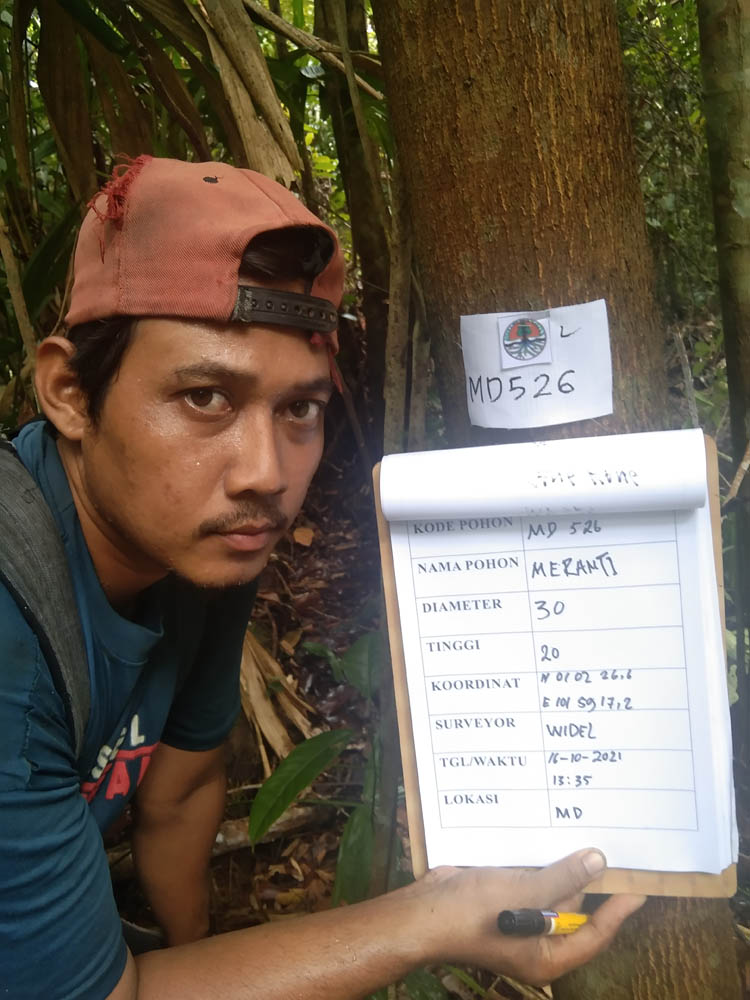 MD526
KODE POHON MD 526
NAMA POHON MERANTI
DIAMETER 30
TINGGI 20
KOORDINAT N 01 02 26,6
E 101 59 17,2
SURVEYOR WIDEL
TGL/WAKTU 16-10-2021
13:35
LOKASI MD